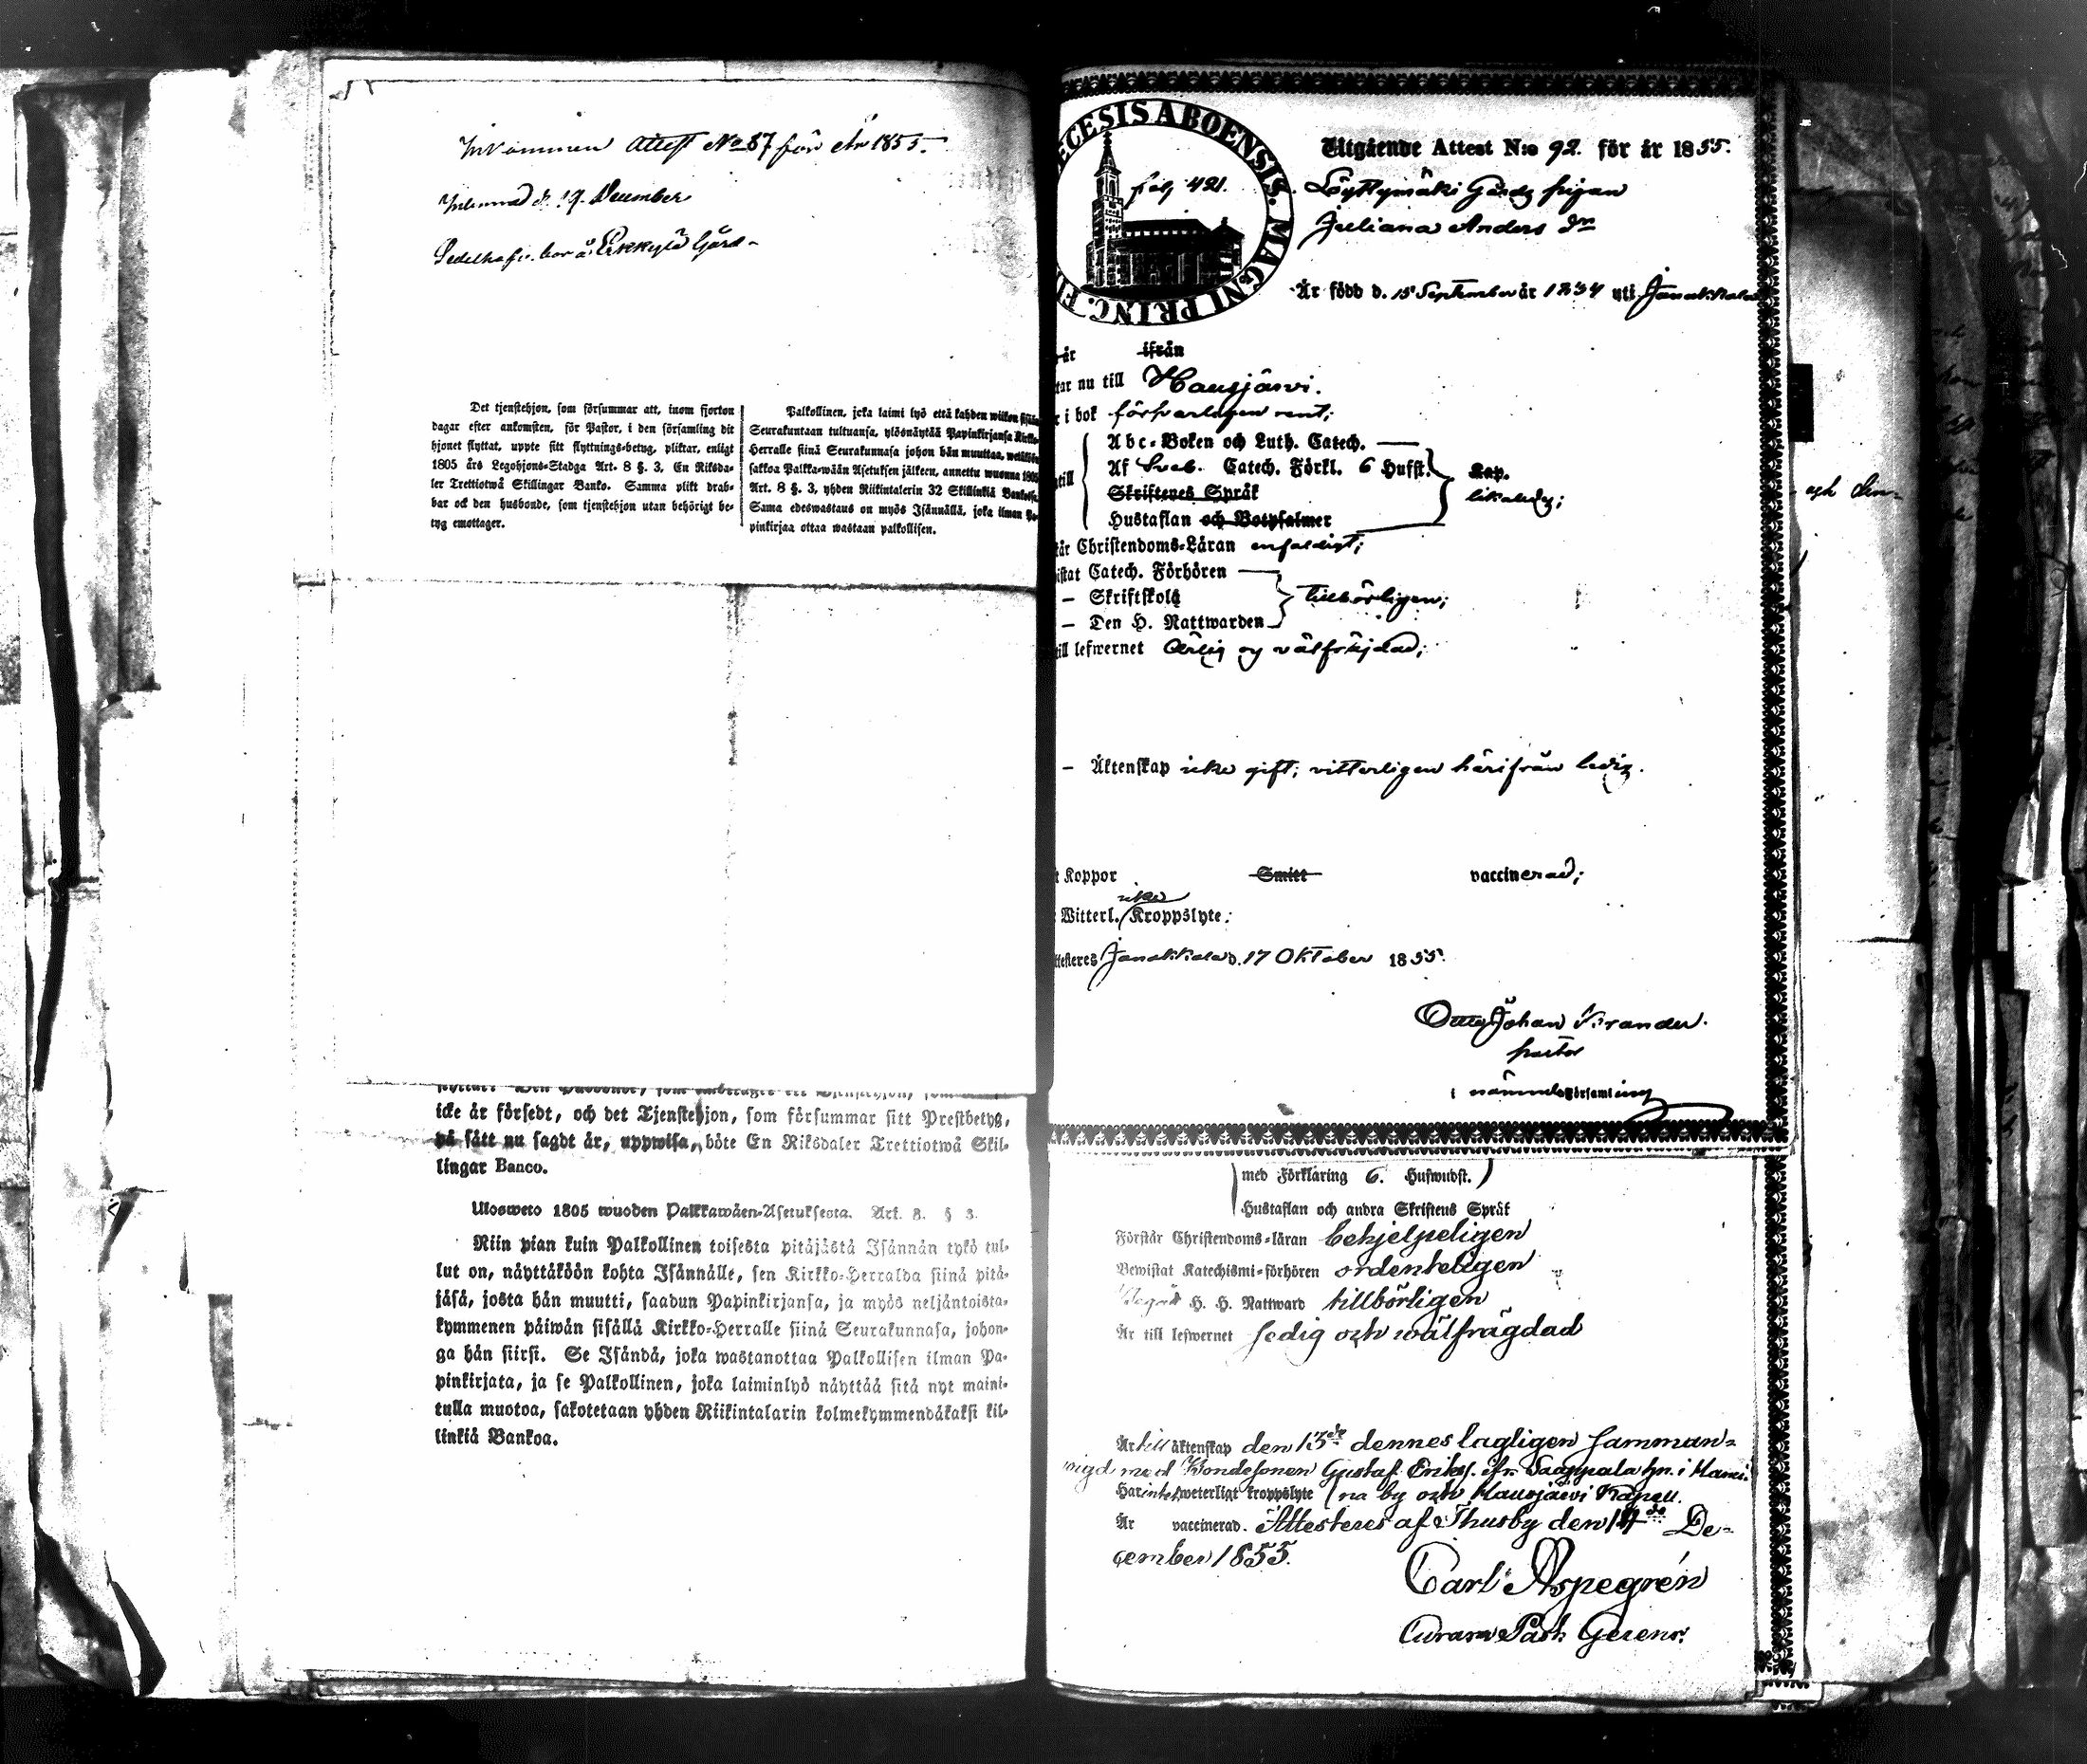 Inkommen Attest No 87 för år 1855.
December
Det tjenstehjon, som försummar att, inom fjorton
dagar efter ankomsten, för Pastor, i den församling dit
hjonet flyttat, uppte sitt flyttnings-betyg, pliktar, enligt
1805 års Legohjons-Stadga Art. 8 §. 3, En Riksda-
ler Trettiotwå Skillingar Banko. Samma plikt drab-
bar ock den husbonde, som tjenstehjon utan behörigt be-
tyg emottager.
Palkollinen, joka laimi lyö että kahden wiikon sisään
Seurakuntaan tultuansa, ylösnäytää Papinkirjansa Kirkko-
Herralle siinä Seurakunnasa johon hän muuttaa,
sakkoa Palkka-wään Asetuksen jälkeen, annettu wuonna 1805
Art. 8 §. 3, yhden Riikintalerin 32 Skillinkiä Bankosa.
Sama edeswastaus on myös Isännällä, joka ilman Pa-
pinkirjaa ottaa wastaan palkollisen.
icke är försedt, och det Tjenstehjon, som försummar sitt Prestbetyg,
på sätt nu sagdt är, uppwisa, böte En Riksdaler Trettiotwå Skil-
lingar Banco.
Ulosweto 1805 wuoden Palkkawäen-Asetuksesta. Art. 8. § 3.
Niin pian kuin Palkollinen toisesta pitäjästä Isännän tykö tul-
lut on, näyttäköön kohta Isännälle, sen Kirkko-Herralda siinä pitä-
jäsä, josta hän muutti, saadun Papinkirjansa, ja myös neljäntoista-
kymmenen päiwän sisällä Kirkko-Herralle siinä Seurakunnasa, johon-
ga hän siirsi. Se Isändä, joka wastanottaa Palkollisen ilman Pa-
pinkirjata, ja se Palkollinen, joka laiminlyö näyttää sitä nyt maini-
tulla muotoa, sakotetaan yhden Riikintalarin kolmekymmendäkaksi kil-
linkiä Bankoa.
ECESIS ABOENSIS. MAGNI PRINC. FI
421.
Utgående Attest N:o 92. för år 1855.
Löyttymäki Gårds pigan
Juliana Anders dr
Är född d. 15 September år 1834 uti Janakkala
år ifrån
tar nu till Hausjärvi.
r i bok försvarligen rent;
till
Abc-Boken och Luth. Catech.
Af Sveb. Catech. Förkl. 6 Hufst.
Skriftenes Språk
Hustaflan och Botpsalmer
Kap.
likaledes;
tår Christendoms-Läran enfaldigt;
istat Catech. Förhören
– Skriftskola
– Den H. Nattwarden
tillbörligen;
till lefwernet ärlig og välfräjdad;
– Äktenskap icke gift; vitterligen härifrån ledig.
t Koppor Smitt vaccinerad;
icke
Witterl. Kroppslyte.
ttesteres Janakkala d. 17 Oktober 1855.
Johan
pastor
i nämnde församling
med Förklaring 6. Hufwudst.
Hustaflan och andra Skriftens Språk
Förstår Christendoms-läran behjelpeligen
Bewistat Katechismi-förhören ordenteligen
H. H. Nattward tillbörligen
Är till lefwernet sedig och wälfrägdad
Är till äktenskap den 13de dennes lagligen samman-
wigd med Bondesonen Gustaf Eriks. ifr. Saappala hn. i Hausi-
Har intet weterligt kroppslyte na by och Hausjärwi Kapell.
Är vaccinerad. Attesteres af Thusby den 14de De-
cember 1855.
Carl Aspegrén
Past. Gerens.
och den-